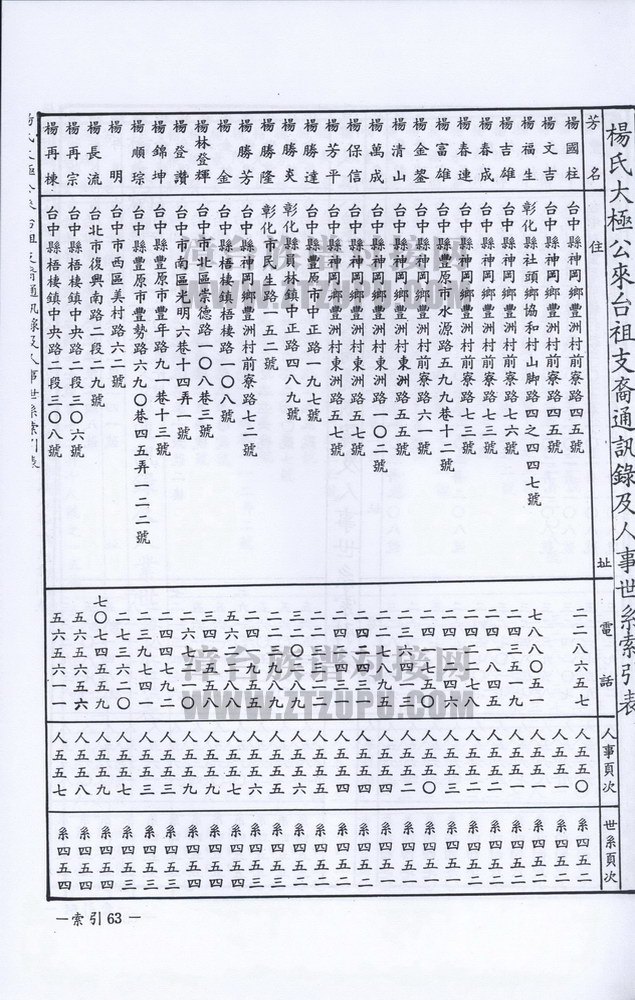 楊氏大極公來台祖支裔通訊錄及人事世系索引表
芳名 住址 電話 人事頁次 世系頁次
楊國柱 台中縣神岡鄉豐洲村前寮路四五號 二二八六五七 人五五〇 系四五二
楊文吉 台中縣神岡鄉豐洲村前寮路四五號 人五五一 系四五二
楊福生 彰化縣社頭鄉協和村山脚路四之四四七號 七八八〇五一 人五五一 系四五二
楊吉雄 台中縣神岡鄉豐洲村前寮路七六號 二四三五一九 人五五一 系四五二
楊春成 台中縣神岡鄉豐洲村前寮路七三號 二四一八四五 人五五二 系四五二
楊春連 台中縣神岡鄉豐洲村前寮路七三號 人五五三 系四五二
楊富雄 台中縣豐原市水源路五九九巷十二號 人五五〇 系四五一
楊金鋆 台中縣神岡鄉豐洲村前寮路六一號 系四五一
楊清山 台中縣神岡鄉豐洲村東洲路五五號 人五五二 系四五二
楊萬成 台中縣神岡鄉豐洲村東洲路一〇二號 人五五四 系四五二
楊保信 台中縣神岡鄉豐洲村東洲路五七號 人五五四 系四五二
楊芳平 台中縣神岡鄉豐洲村東洲路五七號 人五五四 系四五二
楊勝達 台中縣豐原市中正路一九七號 人五五五 系四五二
楊勝炎 彰化縣員林鎮中正路四八九號 人五五六 系四五二
楊勝隆 彰化市民生路一五二號 人五五五 系四五三
楊勝芳 台中縣神岡鄉豐洲村前寮路七二號 人五五六 系四五三
楊金 台中縣梧棲鎮梧棲路一〇八號 人五五九 系四五四
楊林登輝 台中市北區崇德路一〇八巷三號 人五五九 系四五四
楊登讚 台中市南區光明六巷十四弄一號 人五五九 系四五四
楊錦坤 台中縣豐原市豐年路九一巷十三號 二四四七九二 人五五三 系四五三
楊順琮 台中縣豐原市豐勢路六九〇巷四五弄一二二號 二三九七四一 人五五三 系四五三
楊明 台中市西區美村路六二號 二七三六二〇 人五五七 系四五三
楊長流 台北市復興南路二段二九號 七〇七四五五九 人五五九 系四五四
楊再宗 台中縣梧棲鎮中央路二段三〇六號 五六五六五六 人五五八 系四五四
楊再棟 台中縣梧棲鎮中央路二段三〇八號 五六五六一一 人五五七 系四五四
漳台族谱对接网
WWW.ZTZUPU.COM
漳台族谱对接网
WWW.ZTZUPU.COM
—索引63—